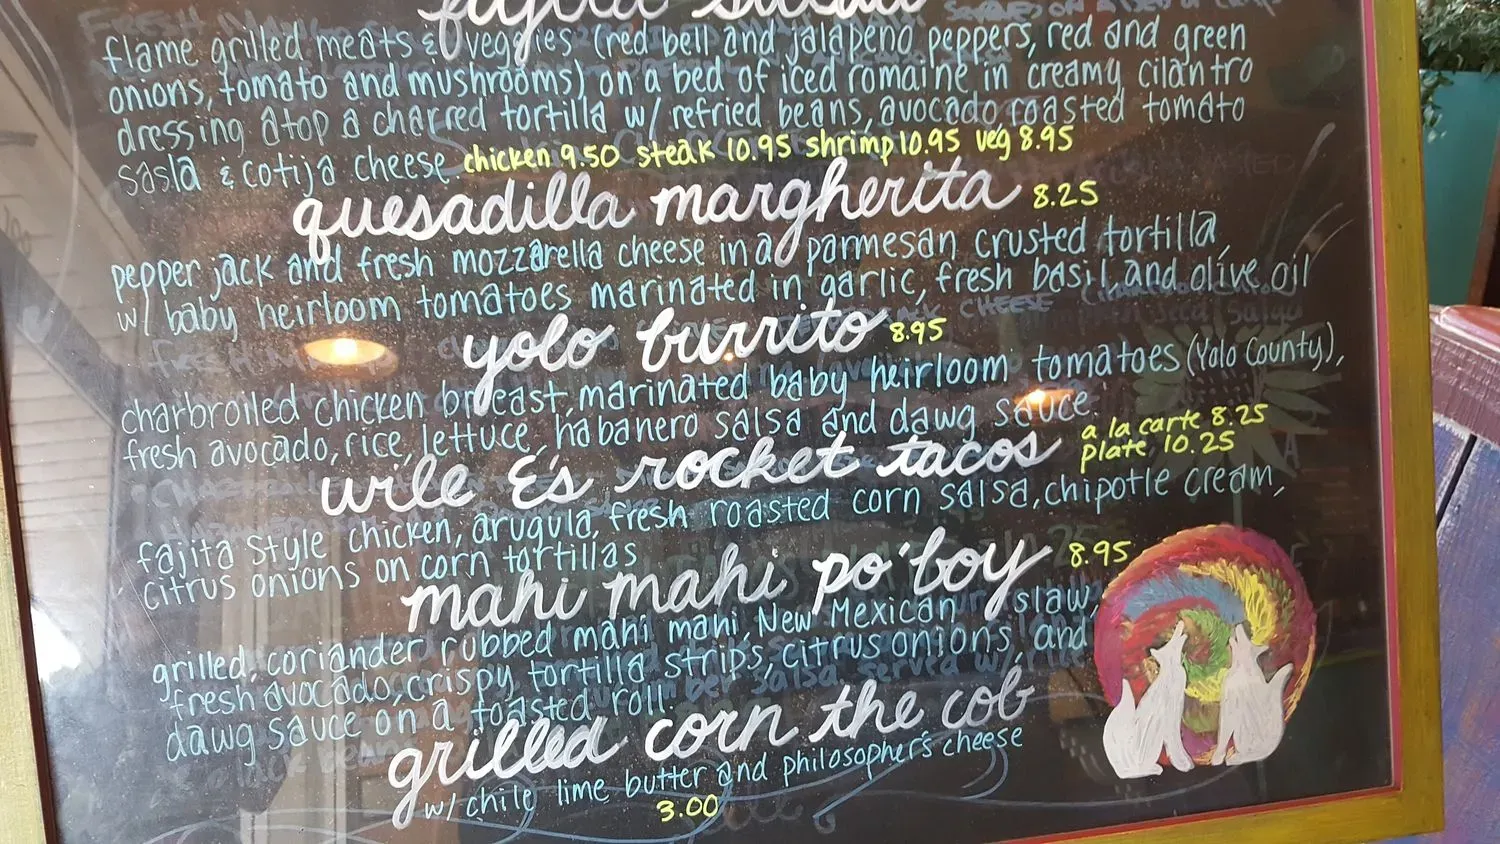 fajita salad
flame grilled meats & veggies (red bell and jalapeno peppers, red and green
onions, tomato and mushrooms) on a bed of iced romaine in creamy cilantro
dressing atop a charred tortilla w/ refried beans, avocado, roasted tomato
sasla & cotija cheese chicken 9.50 steak 10.95 shrimp 10.95 veg 8.95
quesadilla margherita 8.25
pepper jack and fresh mozzarella cheese in a parmesan crusted tortilla,
w/ baby heirloom tomatoes marinated in garlic, fresh basil, and olive oil
yolo burrito 8.95
charbroiled chicken breast, marinated baby heirloom tomatoes (Yolo County),
fresh avocado, rice, lettuce, habanero salsa and dawg sauce.
wile E's rocket tacos a la carte 8.25
plate 10.25
fajita style chicken, arugula, fresh roasted corn salsa, chipotle cream,
citrus onions on corn tortillas
mahi mahi po'boy 8.95
grilled, coriander rubbed mahi mahi, New Mexican slaw,
fresh avocado, crispy tortilla strips, citrus onions, and
dawg sauce on a toasted roll.
grilled corn on the cob
w/ chile lime butter and philosopher's cheese
3.00